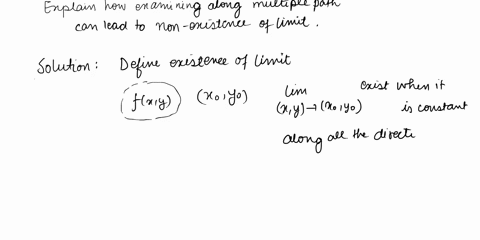 Explain how examining along multiple path
can lead to non-existence of limit.
Solution: Define existence of limit
f(x,y) (x₀,y₀) lim exist when it
(x,y)→(x₀,y₀) is constant
along all the directi